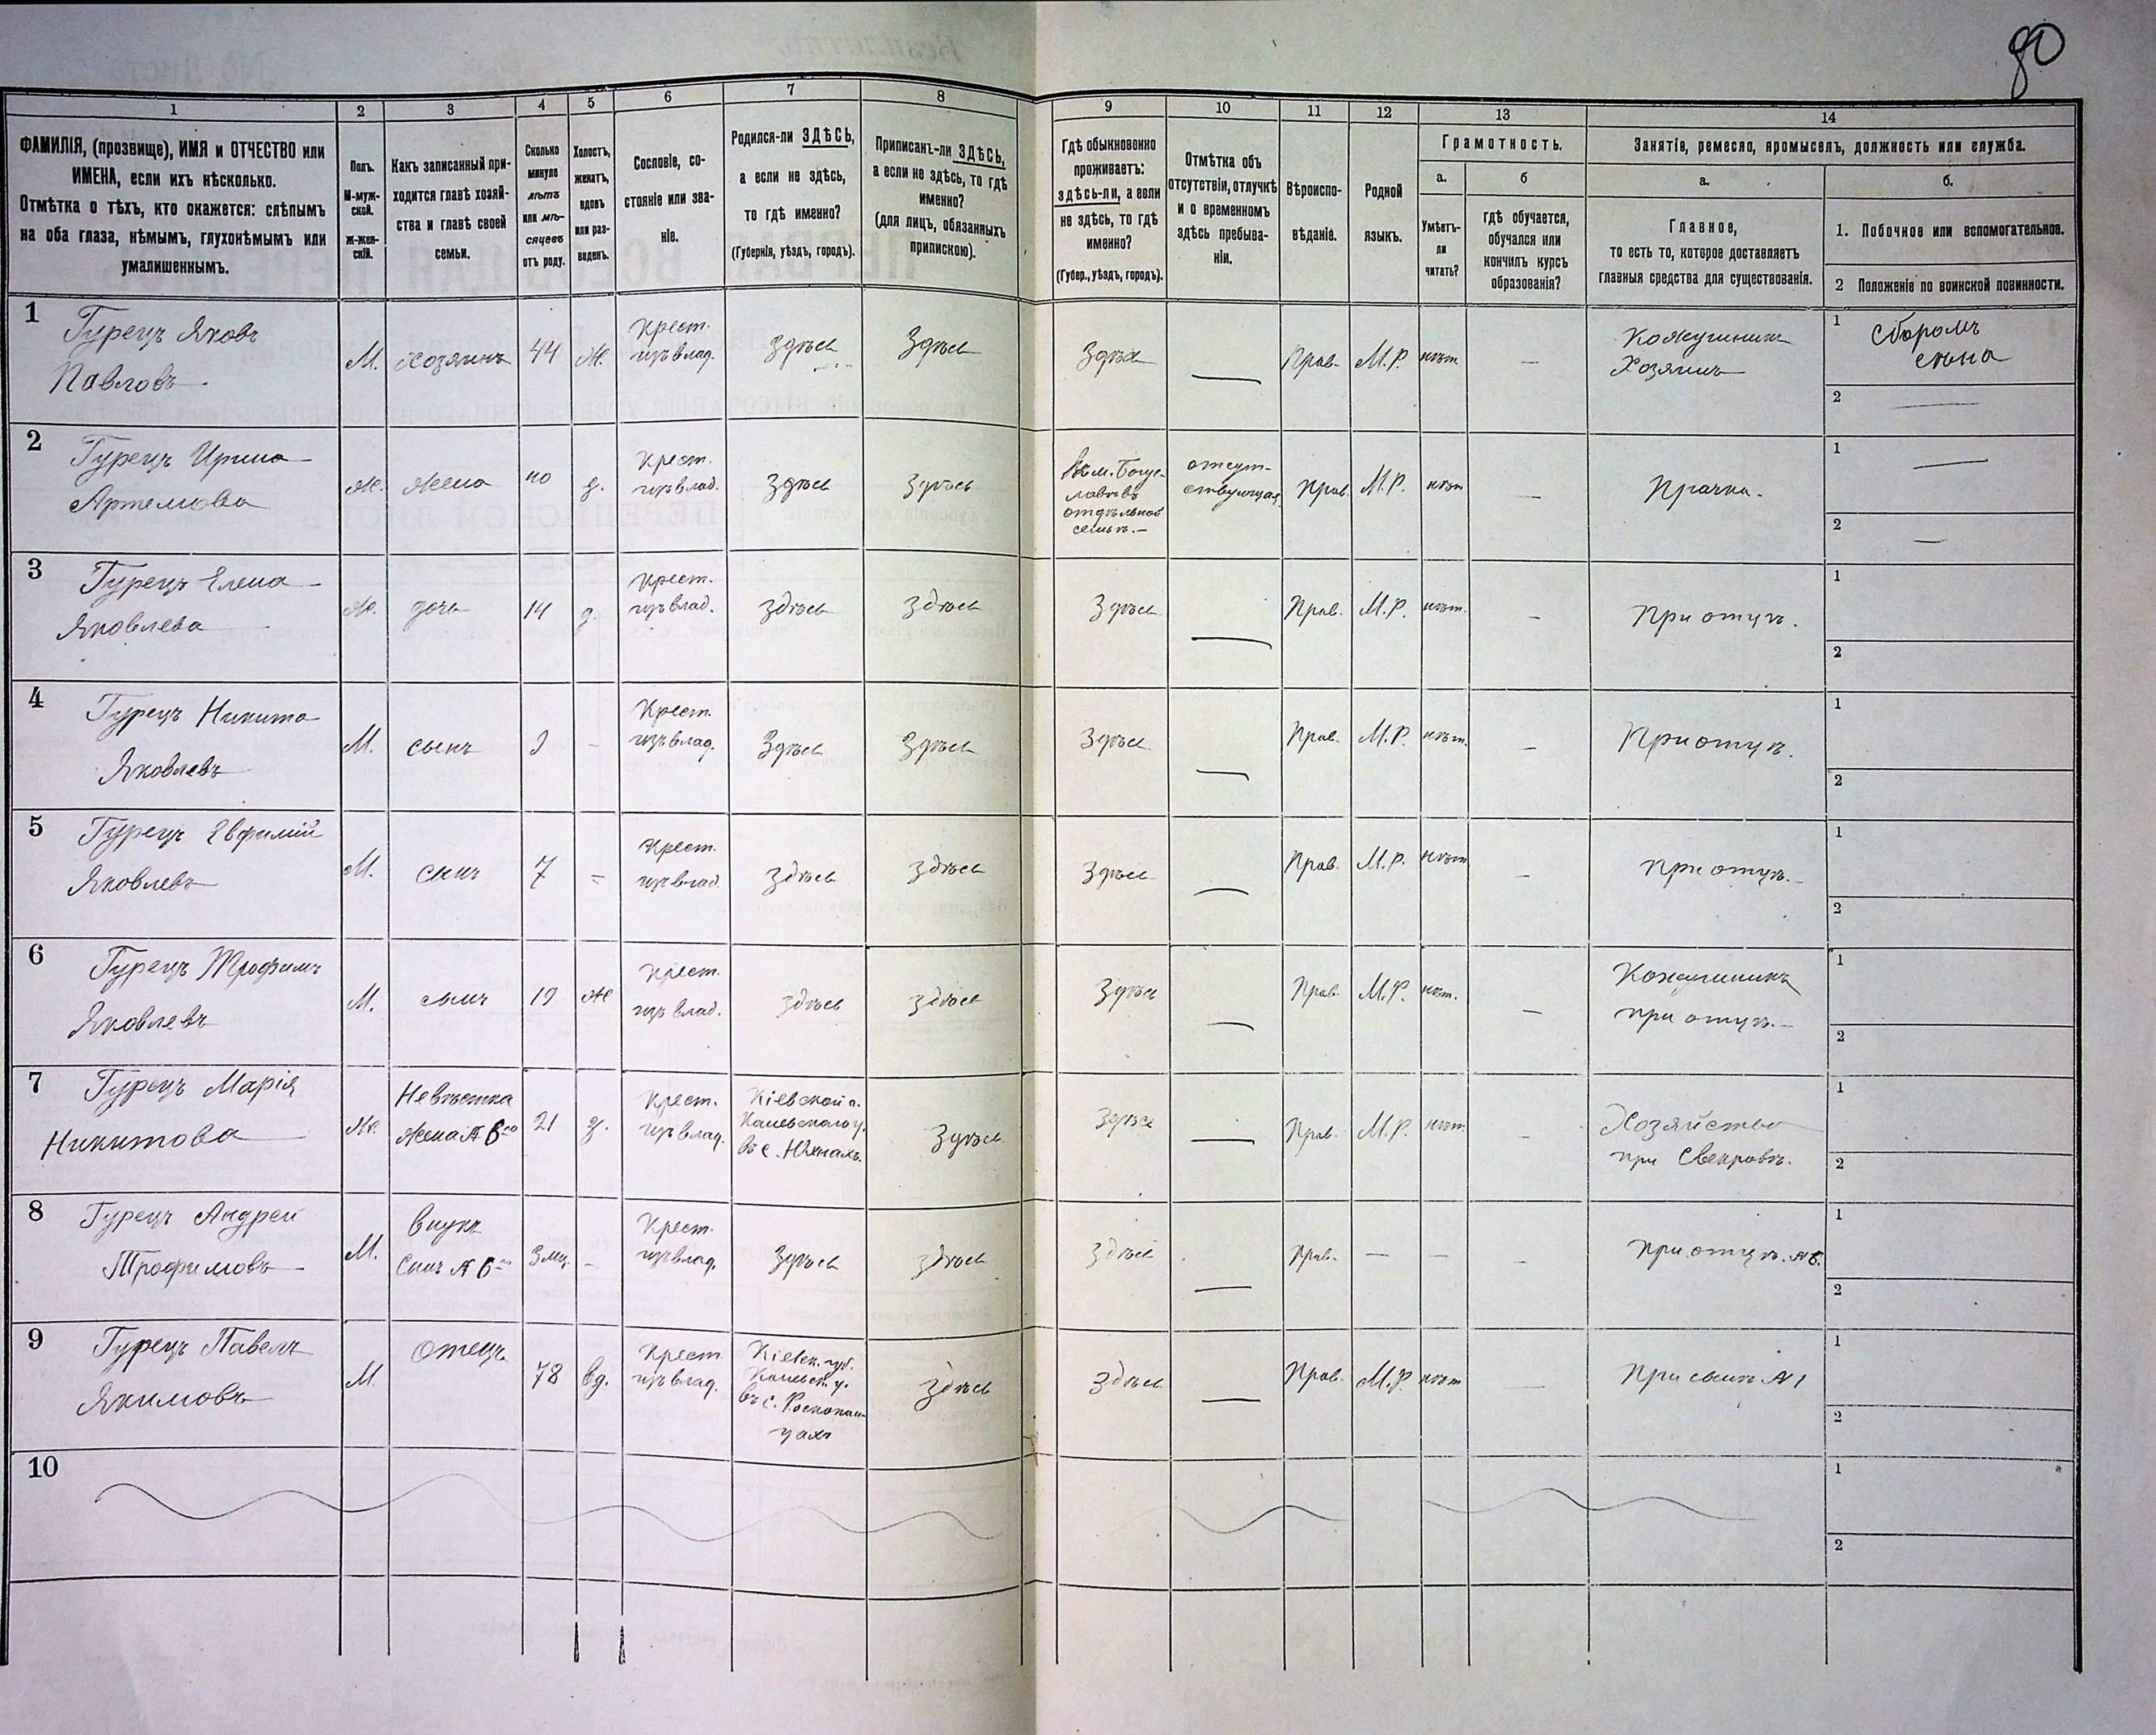 80
1
2
3
4
5
6
7
8
9
10
11
12
13
14
ФАМИЛІЯ, (прозвище), ИМЯ и ОТЧЕСТВО или
ИМЕНА, если ихъ нѣсколько.
Отмѣтка о тѣхъ, кто окажется: слѣпымъ
на оба глаза, нѣмымъ, глухонѣмымъ или
умалишеннымъ.
Полъ.
М-муж-
ской.
Ж-жен-
скій.
Какъ записанный при-
ходится главѣ хозяй-
ства и главѣ своей
семьи.
Сколько
минуло
лѣтъ
или мѣ-
сяцевъ
отъ роду.
Холостъ,
женатъ,
вдовъ
или раз-
веденъ.
Сословіе, со-
стояніе или зва-
ніе.
Родился-ли ЗДѢСЬ,
а если не здѣсь,
то гдѣ именно?
(Губернія, уѣздъ, городъ).
Приписанъ-ли ЗДѢСЬ,
а если не здѣсь, то гдѣ
именно?
(для лицъ, обязанныхъ
припискою).
Гдѣ обыкновенно
проживаетъ:
здѣсь-ли, а если
не здѣсь, то гдѣ
именно?
(Губер., уѣздъ, городъ).
Отмѣтка объ
отсутствіи, отлучкѣ
и о временномъ
здѣсь пребыва-
ніи.
Вѣроиспо-
вѣданіе.
Родной
языкъ.
Грамотность.
а.
Умѣетъ-
ли
читать?
б
гдѣ обучается,
обучался или
кончилъ курсъ
образованія?
Занятіе, ремесло, промыселъ, должность или служба.
а.
Главное,
то есть то, которое доставляетъ
главныя средства для существованія.
б.
1. Побочное или вспомогательное.
2 Положеніе по воинской повинности.
1
Гурецъ Яковъ
Павловъ
М.
Хозяинъ
44
Ж.
Крест.
изъ влад.
Здѣсь
Здѣсь
Здѣсь
—
Прав.
М.Р.
нѣт
—
Кожушникъ
Хозяинъ
1
Сборомъ
сѣна
2
—
2
Гурецъ Ирина
Артемова
Ж.
жена
40
з.
Крест.
изъ влад.
Здѣсь
Здѣсь
отдѣльной
семьѣ.—
отсут-
ствующая
Прав.
М.Р.
нѣт
—
Прачка.
1
—
2
—
3
Гурецъ Елена
Яковлева
Ж.
дочь
14
Крест.
изъ влад.
здѣсь
здѣсь
Здѣсь
—
Прав.
М.Р.
нѣт.
—
При отцѣ.
1
2
4
Гурецъ Никита
Яковлевъ
М.
сынъ
9
-
Крест.
изъ влад.
Здѣсь
Здѣсь
Здѣсь
—
Прав.
М.Р.
нѣт.
—
При отцѣ.
1
2
5
Гурецъ Евфимій
Яковлевъ
М.
сынъ
7
Крест.
изъ влад.
здѣсь
здѣсь
Здѣсь
—
Прав.
М.Р.
нѣт
—
при отцѣ.—
1
2
6
Гурецъ Трофимъ
Яковлевъ
М.
сынъ
19
Ж
Крест.
изъ влад.
здѣсь
здѣсь
Здѣсь
—
Прав.
М.Р.
нѣт.
—
Кожушникъ
при отцѣ.—
1
2
7
Гурецъ Марія
Никитова
Ж.
Невѣстка
жена № 6го
21
з.
Крест.
изъ влад.
Кіевской г.
Каневскаго у.
Здѣсь
Здѣсь
—
Прав.
М.Р.
нѣт.
-
Хозяйство
при Свекровѣ.
1
2
8
Гурецъ Андрей
Трофимовъ
М.
внукъ
Сынъ № 6го
3 мц.
-
Крест.
изъ влад.
Здѣсь
здѣсь
здѣсь
—
Прав.
—
—
—
При отцѣ. №6.
1
2
9
Гурецъ Павелъ
Якимовъ
М.
Отецъ
78
вд.
Крест
изъ влад.
Кіевск. губ.
Каневск. у.
въ с. Роскопан-
цахъ
здѣсь
здѣсь
—
Прав.
М.Р.
нѣт
—
При сынѣ №1
1
2
10
1
2